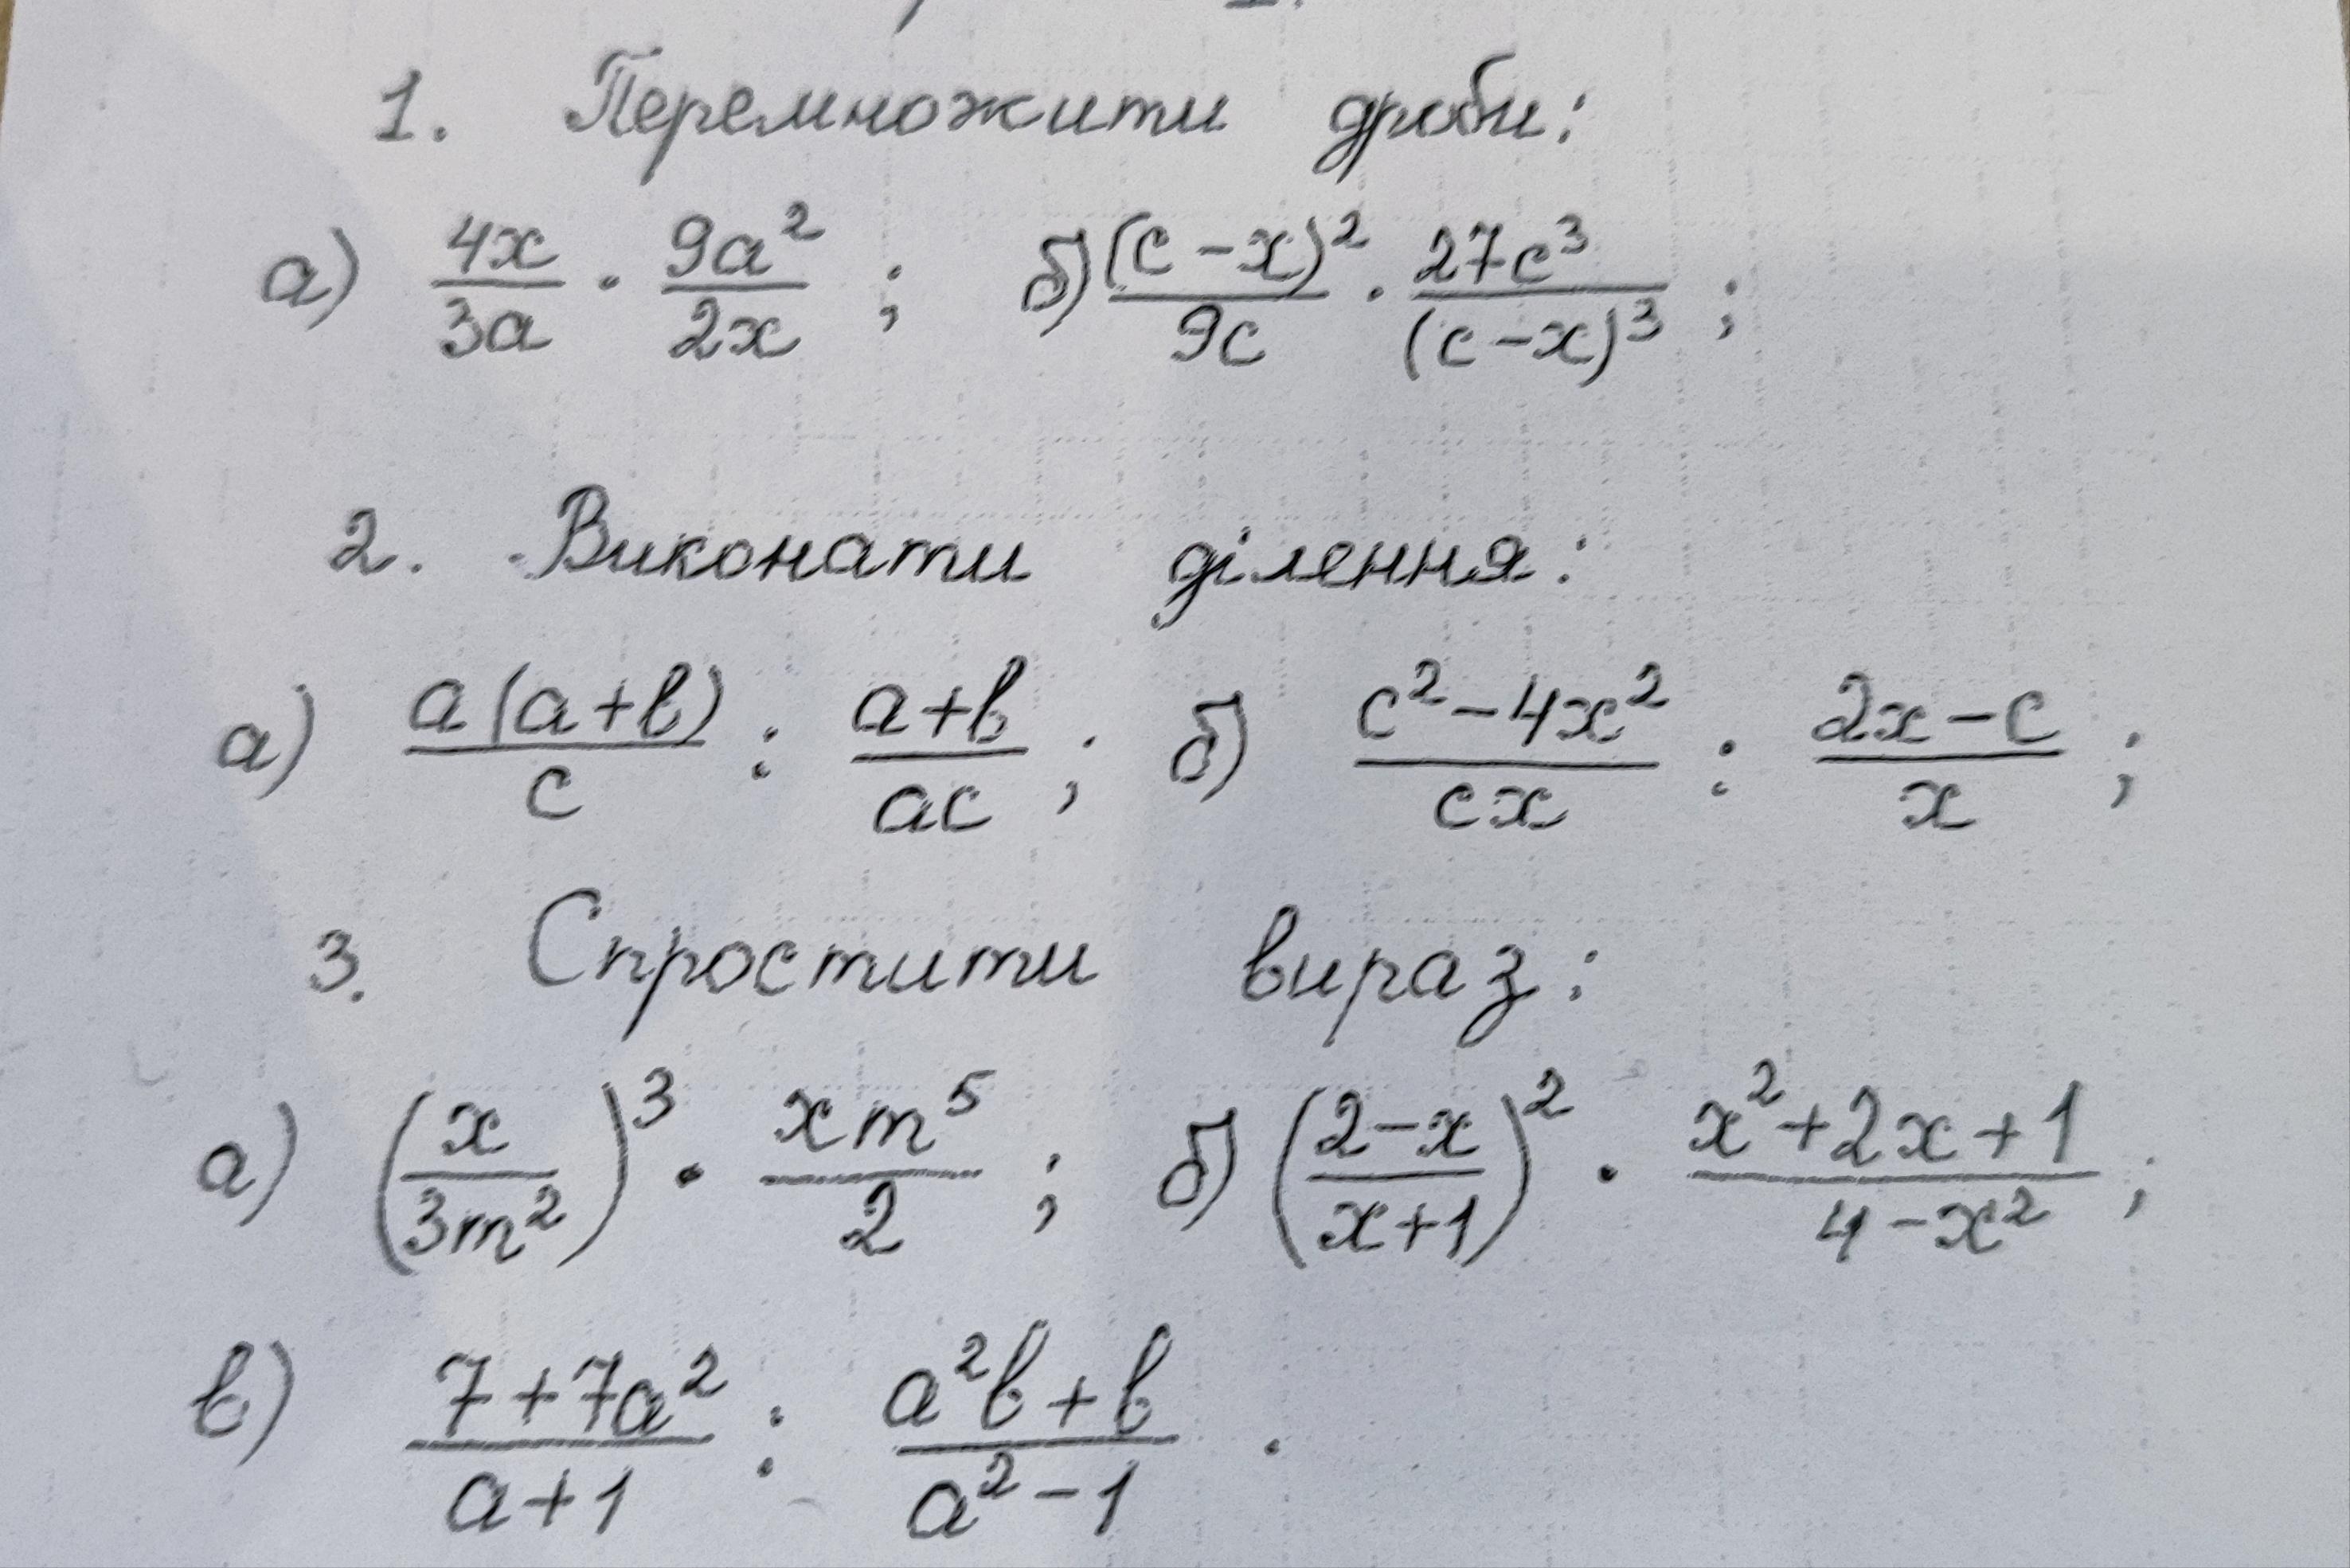 1. Перемножити дроби:
а) \frac{4x}{3a} \cdot \frac{9a^2}{2x}; б) \frac{(c-x)^2}{9c} \cdot \frac{27c^3}{(c-x)^3};
2. Виконати ділення:
а) \frac{a(a+b)}{c} : \frac{a+b}{ac}; б) \frac{c^2-4x^2}{cx} : \frac{2x-c}{x};
3. Спростити вираз:
а) \left(\frac{x}{3m^2}\right)^3 \cdot \frac{xm^5}{2}; б) \left(\frac{2-x}{x+1}\right)^2 \cdot \frac{x^2+2x+1}{4-x^2};
в) \frac{7+7a^2}{a+1} : \frac{a^2b+b}{a^2-1}.